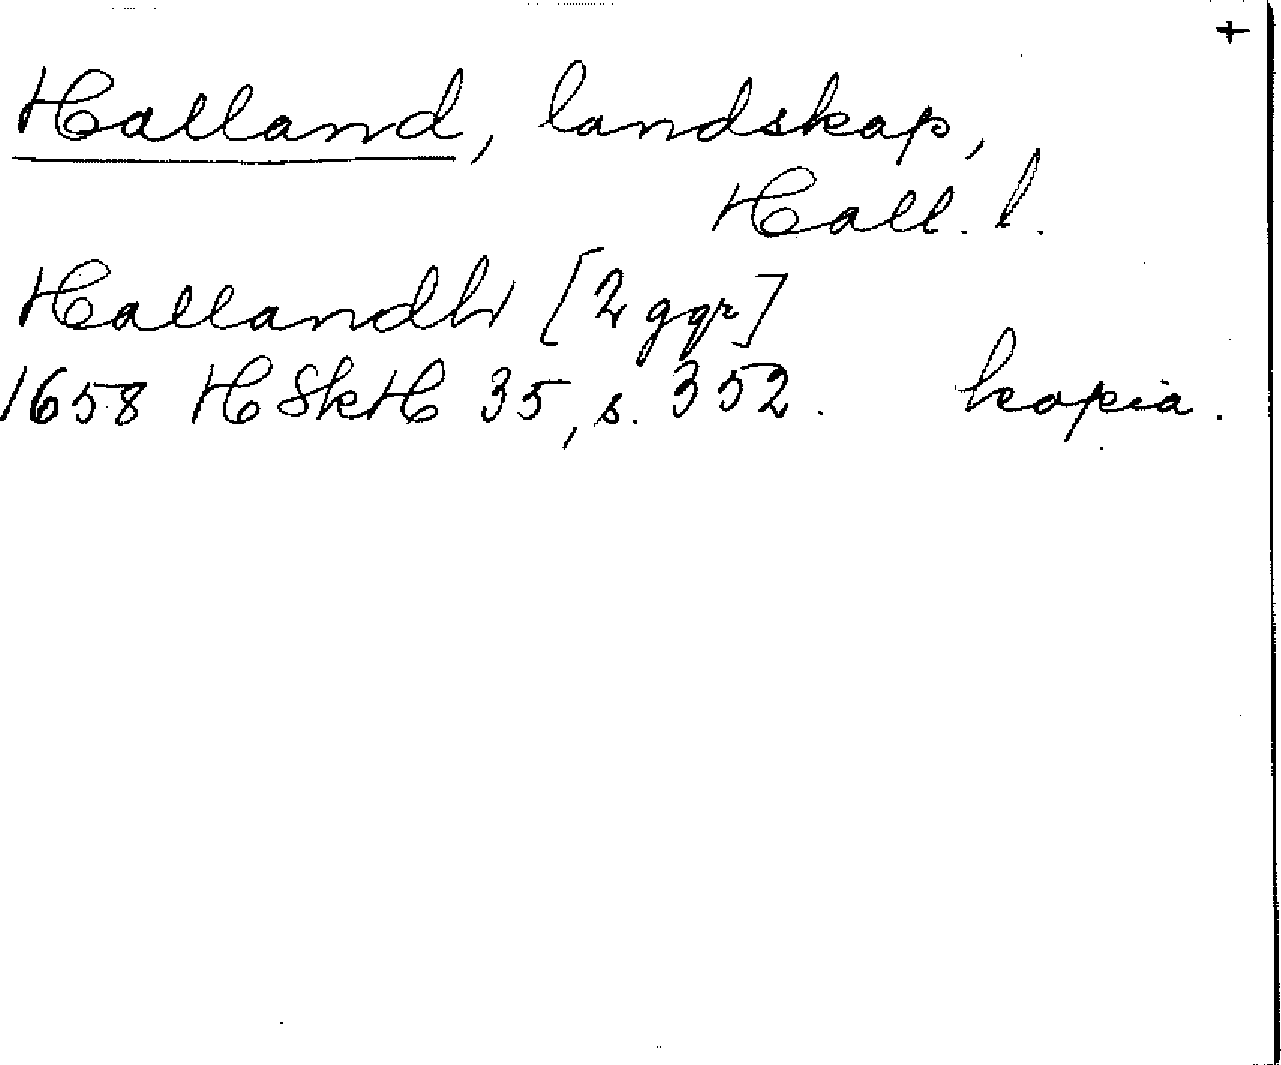 +
Halland, landskap,
Hall. l.
Hallandh [2 ggr]
1658 HSkH 35, s. 352. kopia.